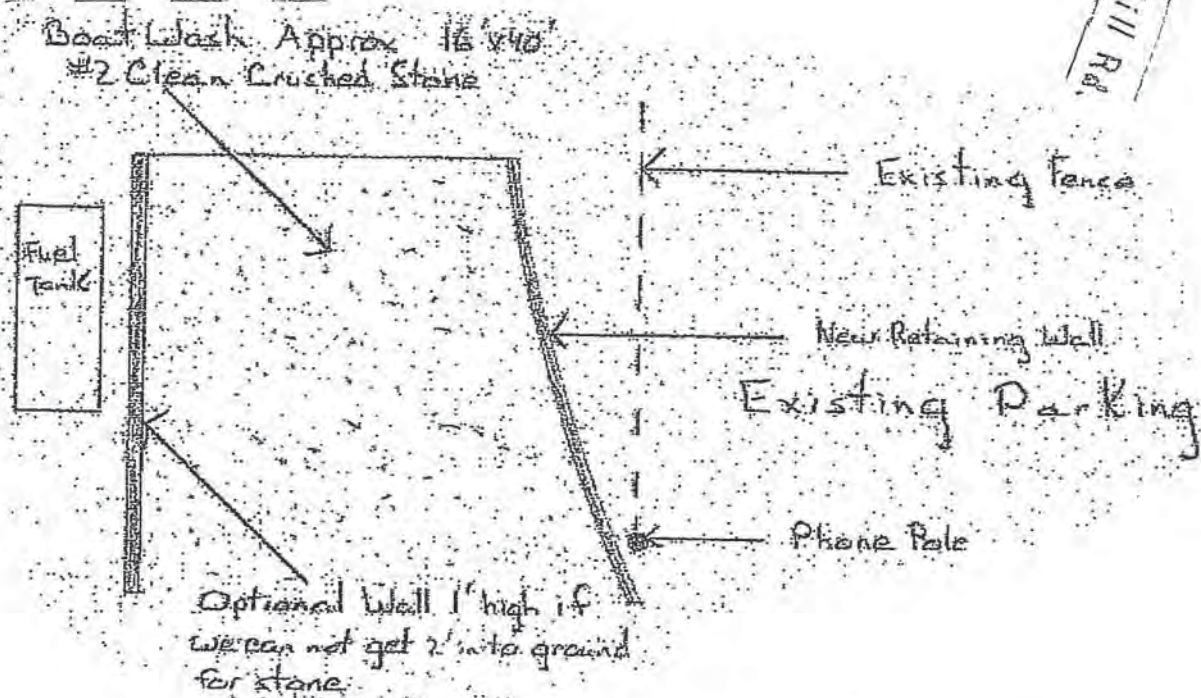 Boat Wash Approx 16'x40'
#2 Clean Crushed Stone
ill Rd.
Existing Fence
Fuel
Tank
New Retaining Wall
Existing Parking
Phone Pole
Optional Wall 1' high if
we can not get 2' into ground
for stone